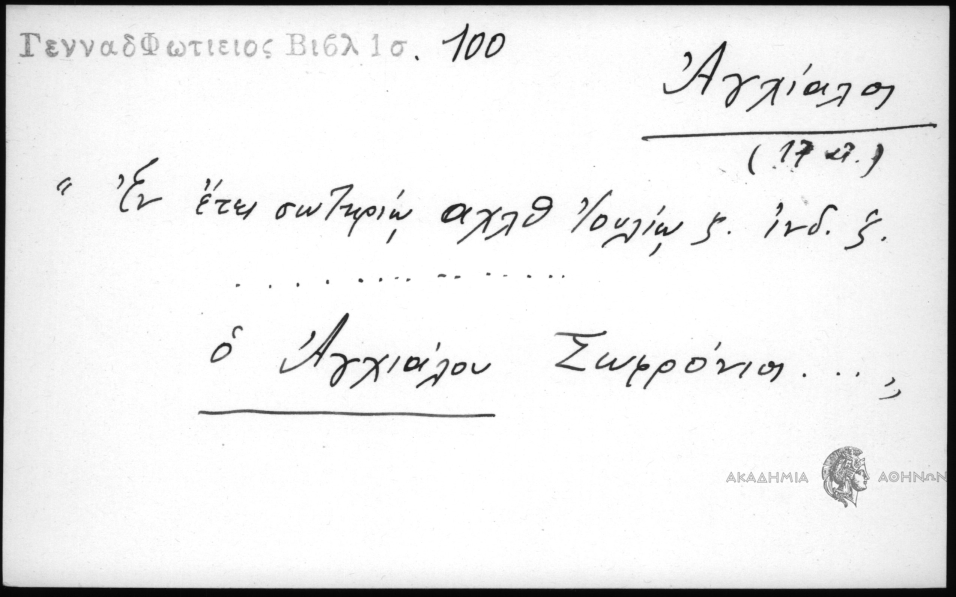 ΓενναδΦωτιειος Βιβλ 1 σ. 100
Ἀγχίαλος
(17 αι.)
“ Ἐν ἔτει σωτηρίῳ αχλθ Ἰουλίῳ ζ. ἰνδ. ζ.
. . . . . . . . . . . . . . .
ὁ Ἀγχιάλου Σωφρόνιος . . . ”
ΑΚΑΔΗΜΙΑ ΑΘΗΝΩΝ